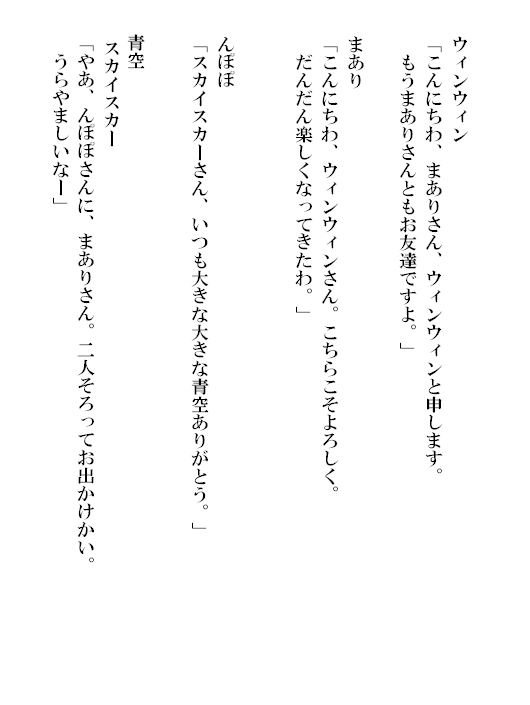 ウィンウィン
「こんにちわ、まありさん、ウィンウィンと申します。
もうまありさんともお友達ですよ。」
まあり
「こんにちわ、ウィンウィンさん。こちらこそよろしく。
だんだん楽しくなってきたわ。」
んぽぽ
「スカイスカーさん、いつも大きな大きな青空ありがとう。」
青空
スカイスカー
「やあ、んぽぽさんに、まありさん。二人そろってお出かけかい。
うらやましいなー」